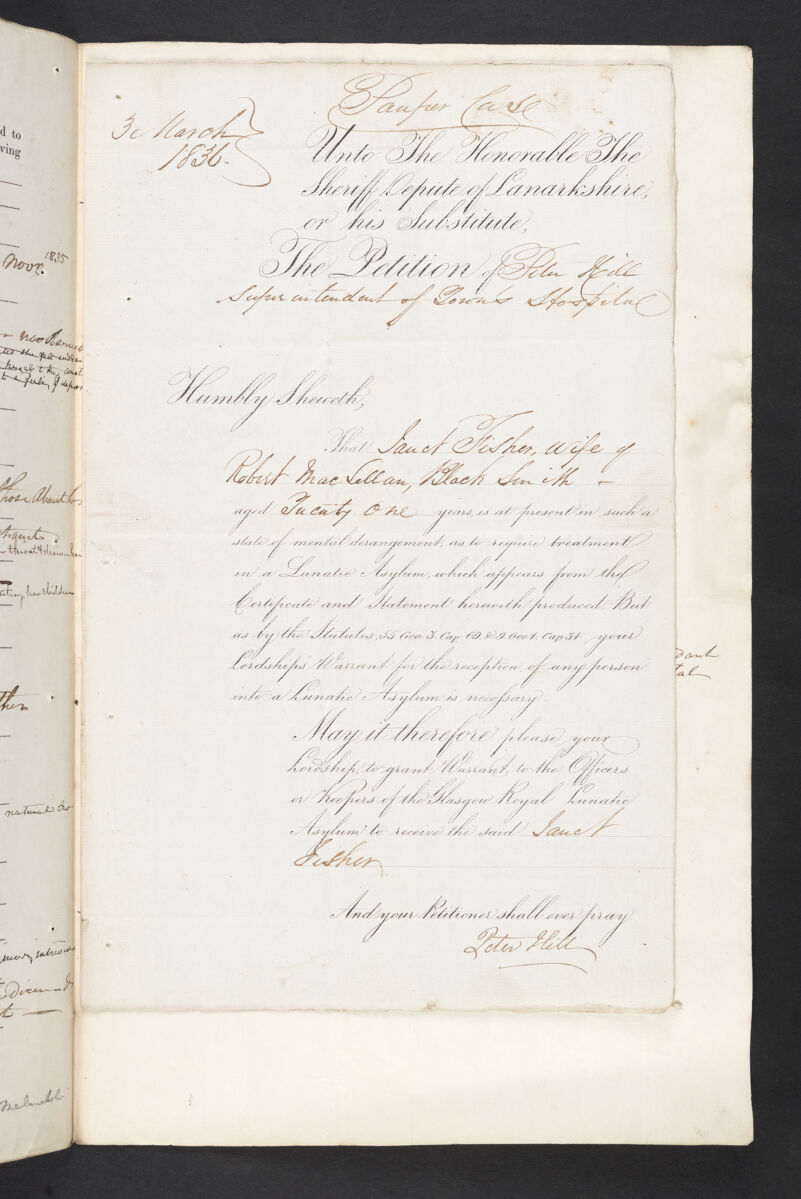 d to
ving
Novr 1835
those about h
eating her children
then
natural
Pauper Case
3 March
1836.
Unto The Honorable The
Sheriff Depute of Lanarkshire,
or his Substitute,
The Petition of Peter Hill
Superintendent of Town's Hospital
Humbly Sheweth,
That Janet Fisher, Wife of
Robert MacLellan, Black Smith –
aged Twenty One years, is at present in such a
state of mental derangement, as to require treatment
in a Lunatic Asylum, which appears from the
Certificate and Statement herewith produced. But
as by the Statutes, 55 Geo. 3. Cap. 69. & 9 Geo 4. Cap. 34 your
Lordship's Warrant for the reception of any person
into a Lunatic Asylum is necessary.
May it therefore please your
Lordship, to grant Warrant to the Officers
or Keepers of the Glasgow Royal Lunatic
Asylum to receive the said Janet
Fisher.
And your Petitioner shall ever pray.
Peter Hill
dant
tal